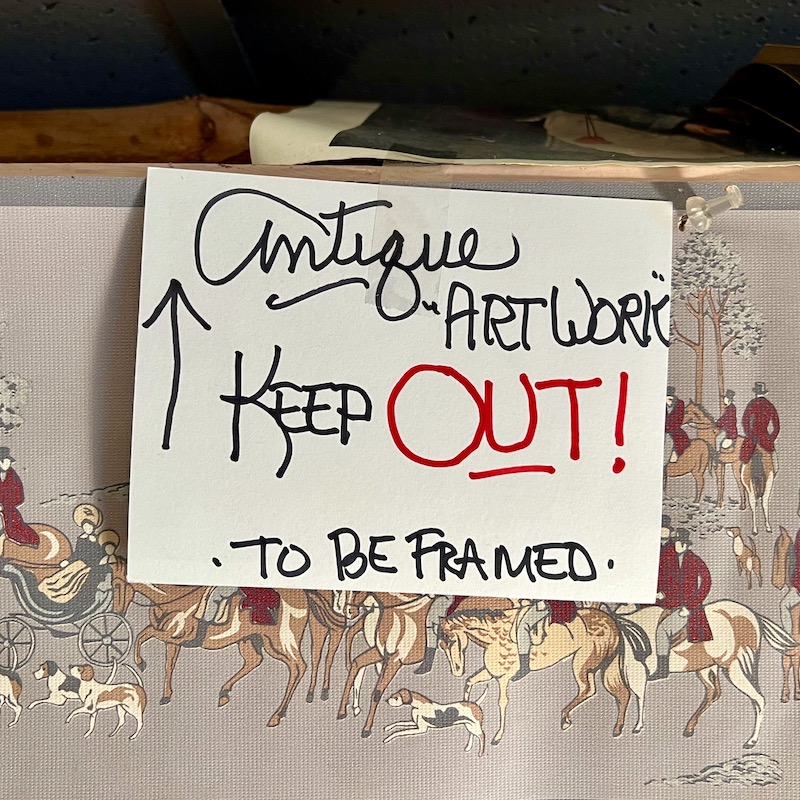 Antique
"ARTWORK"
KEEP OUT!
· TO BE FRAMED ·